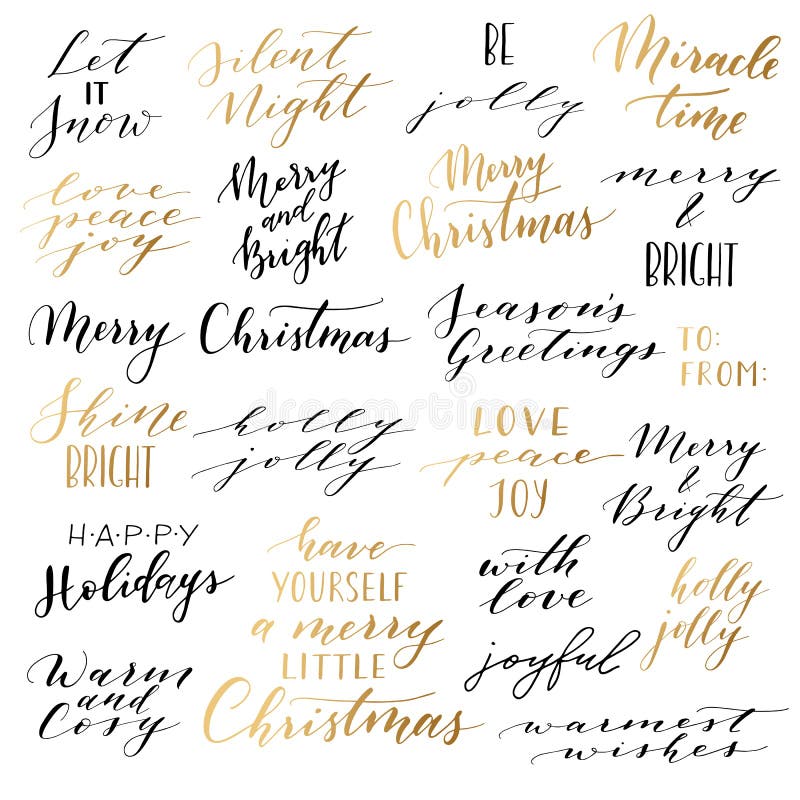 Let
IT
Snow
Silent
Night
BE
jolly
Miracle
time
love
peace
joy
Merry
and
Bright
Merry
Christmas
merry
&
BRIGHT
Merry Christmas
Season's
Greetings
TO:
FROM:
Shine
BRIGHT
holly
jolly
LOVE
peace
JOY
Merry
&
Bright
H·A·P·P·Y
Holidays
have
YOURSELF
a merry
LITTLE
Christmas
with
love
holly
jolly
joyful
Warm
and
Cosy
warmest
wishes
dreamstime